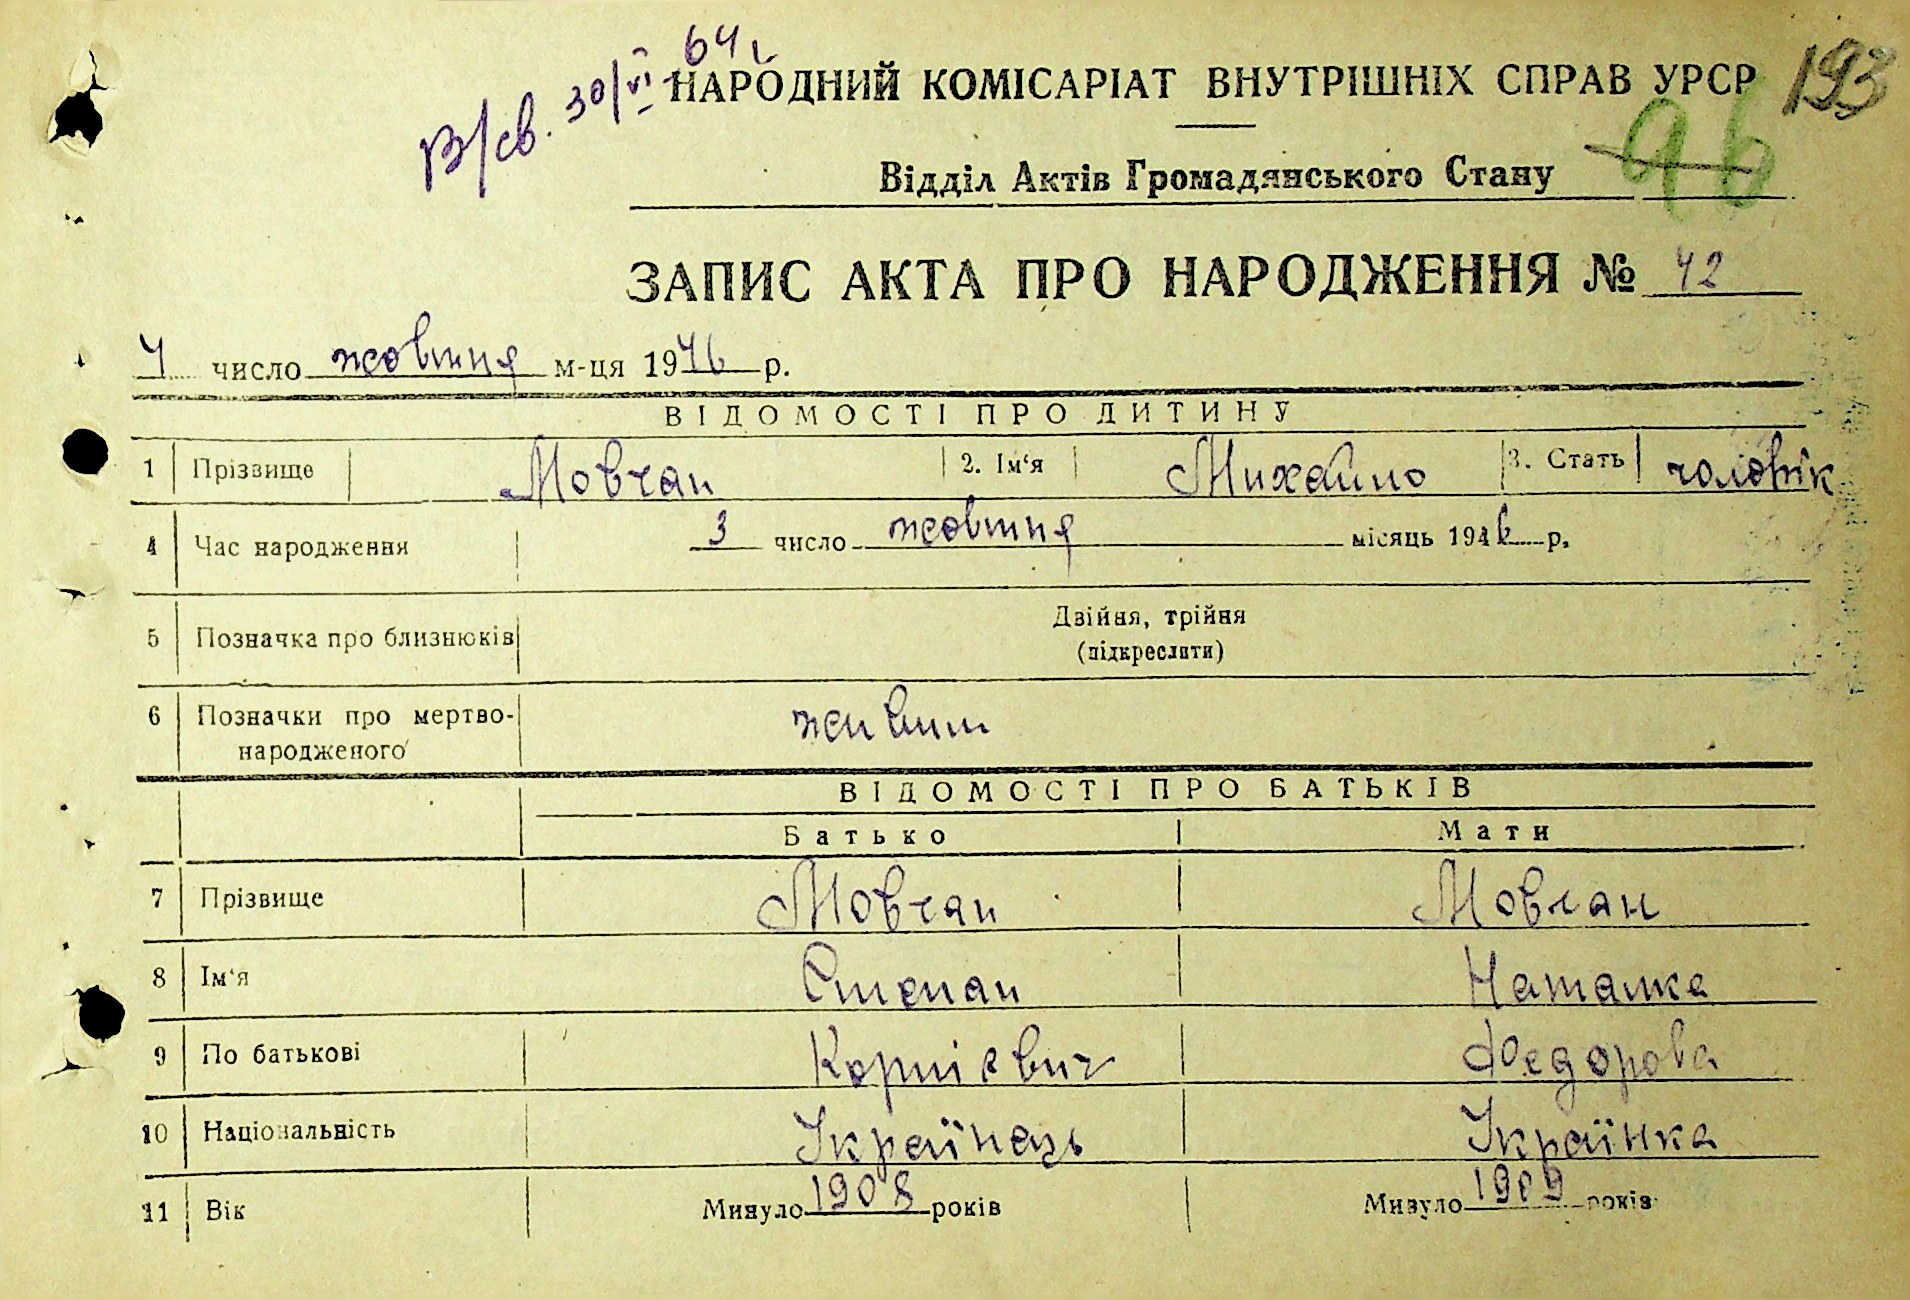 В/св. 30/VI-64 г
НАРОДНИЙ КОМІСАРІАТ ВНУТРІШНІХ СПРАВ УРСР 193
Відділ Актів Громадянського Стану 96
ЗАПИС АКТА ПРО НАРОДЖЕННЯ № 42
4 число жовтня м-ця 1946 р.
ВІДОМОСТІ ПРО ДИТИНУ
1 Прізвище Мовчан 2. Ім'я Михайло 3. Стать чоловік
4 Час народження 3 число жовтня місяць 1946 р.
5 Позначка про близнюків Двійня, трійня
(підкреслити)
6 Позначки про мертво-
народженого живим
ВІДОМОСТІ ПРО БАТЬКІВ
Батько Мати
7 Прізвище Мовчан Мовчан
8 Ім'я Степан Наталка
9 По батькові Корнієвич Федорова
10 Національність Українець Українка
11 Вік Минуло 1908 років Минуло 1909 років